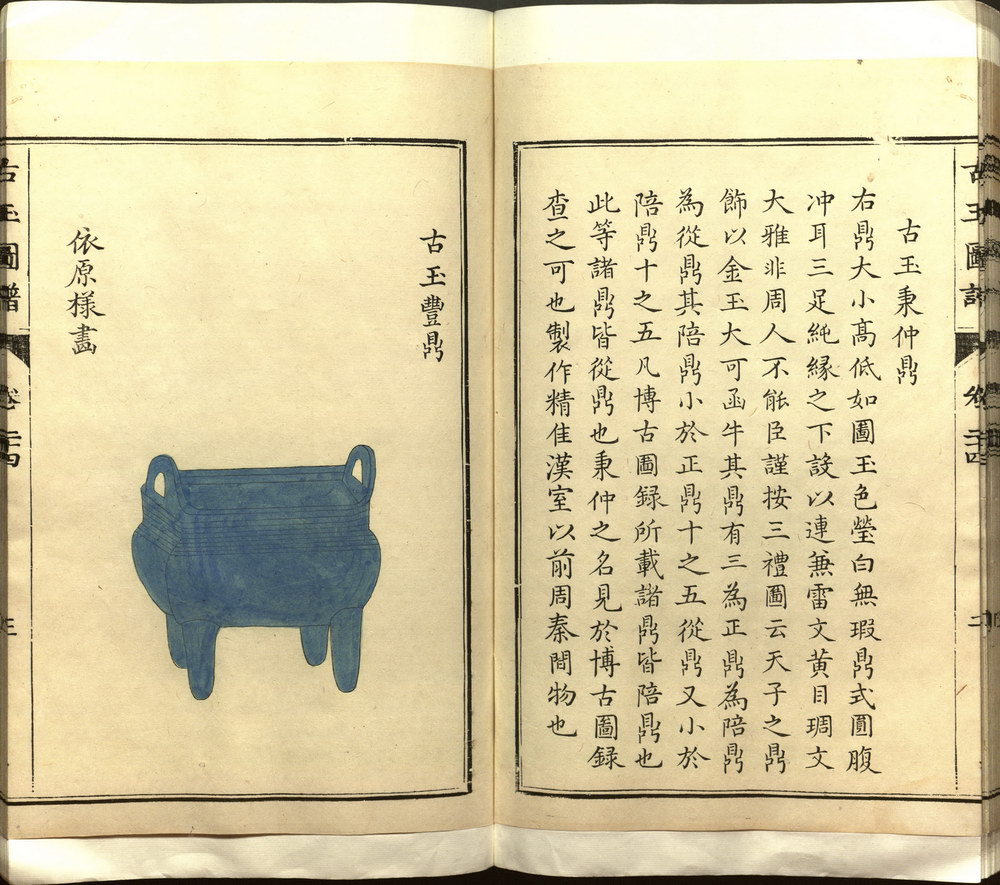 古玉秉仲鼎
右鼎大小髙低如圖玉色瑩白無瑕鼎式圓腹
冲耳三足純縁之下設以連兼雷文黄目琱文
大雅非周人不能臣謹按三禮圖云天子之鼎
飾以金玉大可函牛其鼎有三為正鼎為陪鼎
為從鼎其陪鼎小於正鼎十之五從鼎又小於
陪鼎十之五凡博古圖録所載諸鼎皆陪鼎也
此等諸鼎皆從鼎也秉仲之名見於博古圖録
查之可也製作精佳漢室以前周秦間物也
古玉豐鼎
依原様畫
古玉圖譜